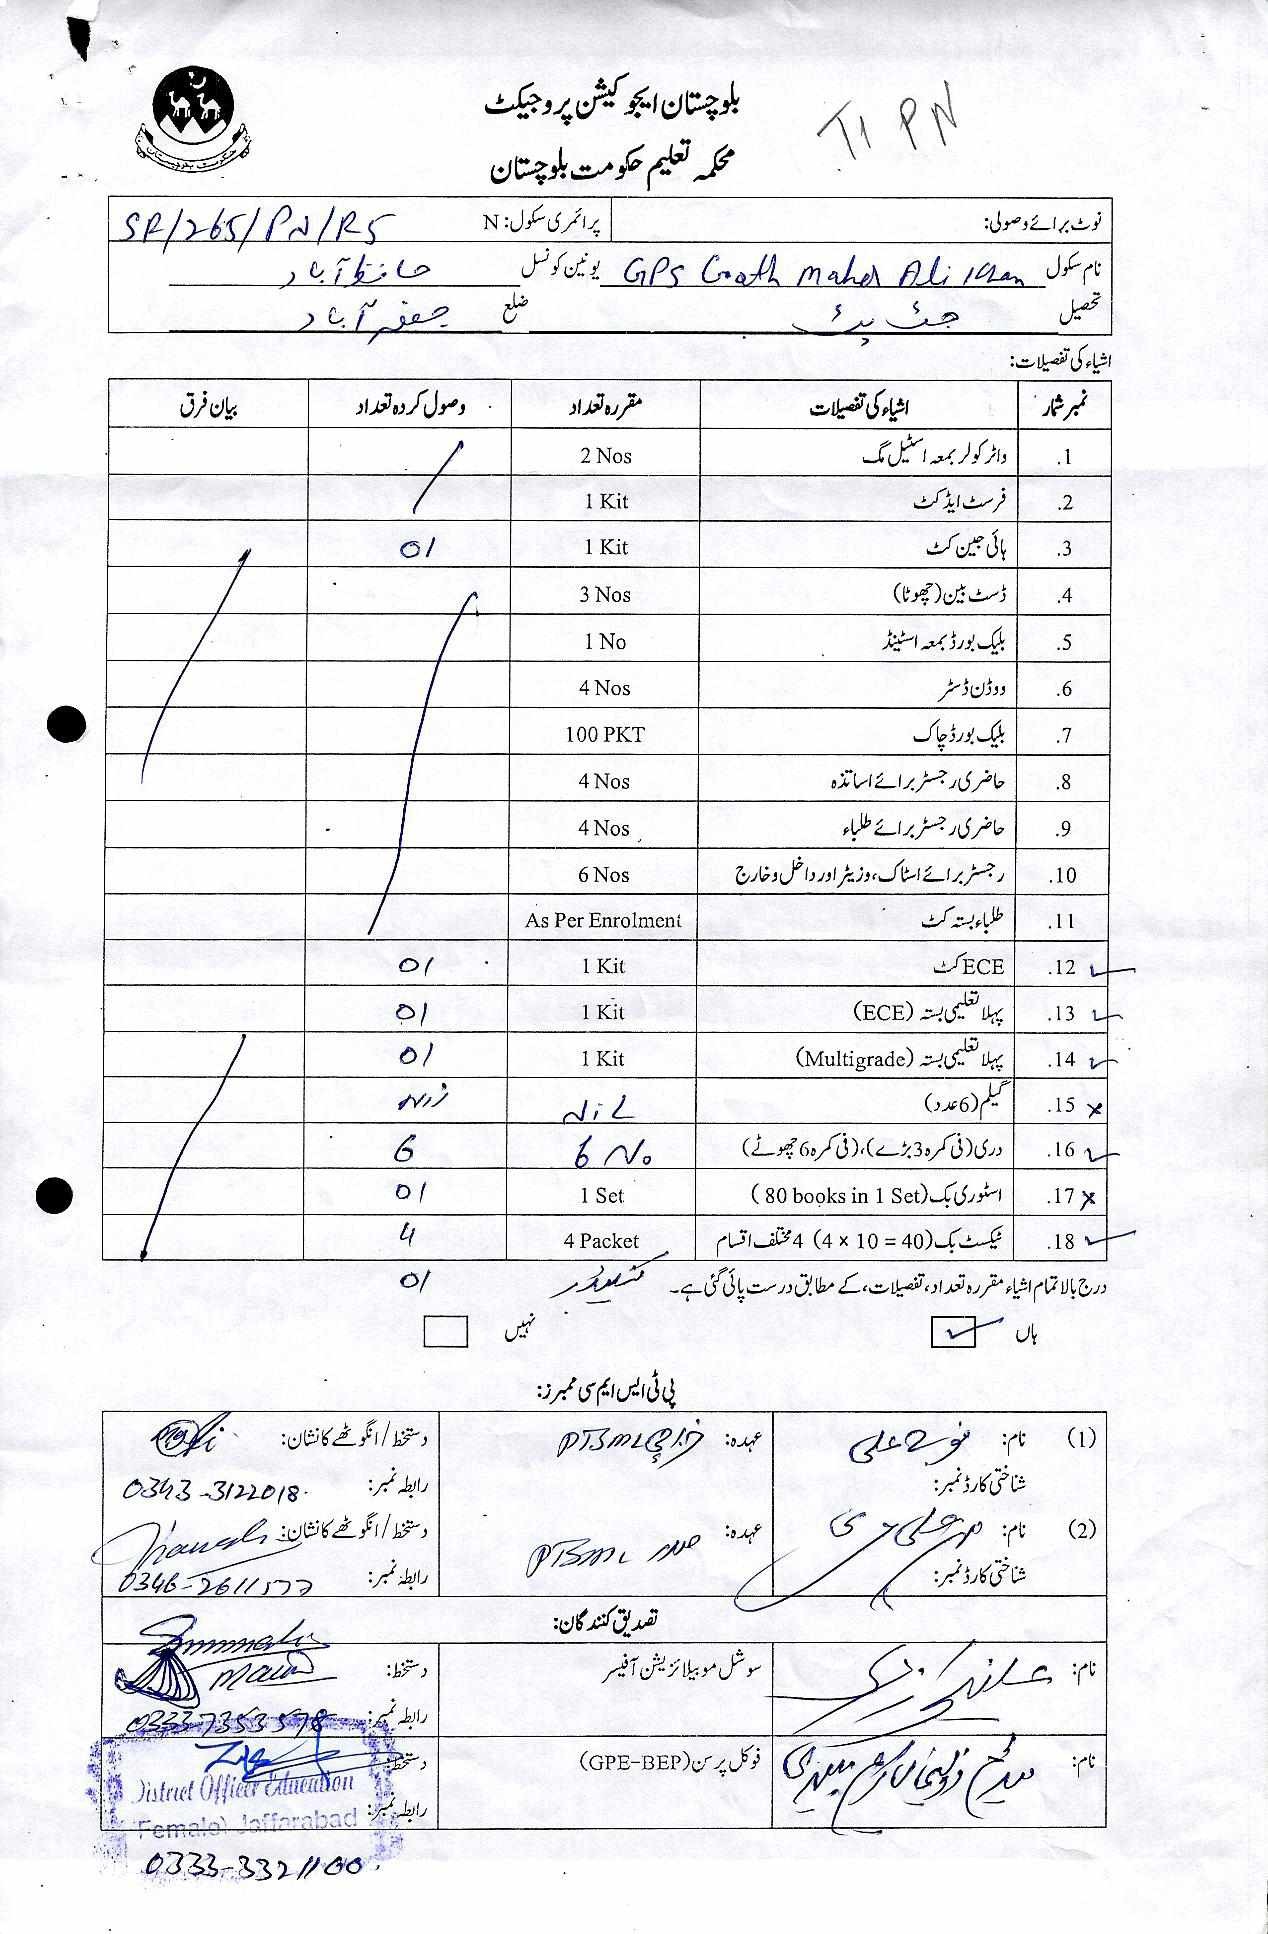 بلوچستان ایجوکیشن پروجیکٹ
T1 PN
محکمہ تعلیم حکومت بلوچستان
نوٹ برائے وصولی: پرائمری سکول: N SR/265/PN/R5
نام سکول GPS Goath Maher Ali Khan یونین کونسل حافظ آباد
تحصیل ضلع جعفر آباد
اشیاء کی تفصیلات:
نمبر شمار اشیاء کی تفصیلات مقررہ تعداد وصول کردہ تعداد بیان فرق
1. واٹر کولر بمعہ اسٹیل مگ 2 Nos
2. فرسٹ ایڈ کٹ 1 Kit
3. ہائی جین کٹ 1 Kit 01
4. ڈسٹ بین (چھوٹا) 3 Nos
5. بلیک بورڈ بمعہ اسٹینڈ 1 No
6. ووڈن ڈسٹر 4 Nos
7. بلیک بورڈ چاک 100 PKT
8. حاضری رجسٹر برائے اساتذہ 4 Nos
9. حاضری رجسٹر برائے طلباء 4 Nos
10. رجسٹر برائے اسٹاک، وزیٹر اور داخل و خارج 6 Nos
11. طلباء بستہ کٹ As Per Enrolment
12. ECE کٹ 1 Kit 01
13. پہلا تعلیمی بستہ (ECE) 1 Kit 01
14. پہلا تعلیمی بستہ (Multigrade) 1 Kit 01
15. گیلم (6 عدد) Nil
16. دری (فی کمرہ 3 بڑے)، (فی کمرہ 6 چھوٹے) 6 No 6
17. اسٹوری بک (80 books in 1 Set) 1 Set 01
18. ٹیکسٹ بک (4 × 10 = 40) 4 مختلف اقسام 4 Packet 4
درج بالا تمام اشیاء مقررہ تعداد، تفصیلات، کے مطابق درست پائی گئی ہے۔ 01
ہاں نہیں
پی ٹی ایس ایم سی ممبرز:
(1) نام: عہدہ: PTSMC دستخط / انگوٹھے کا نشان:
شناختی کارڈ نمبر: رابطہ نمبر: 0343-3122018
(2) نام: عہدہ: صدر PTSMC دستخط / انگوٹھے کا نشان:
شناختی کارڈ نمبر: رابطہ نمبر:
تصدیق کنندگان:
نام: سوشل موبیلائزیشن آفیسر دستخط:
رابطہ نمبر: 0333-7353578
نام: فوکل پرسن (GPE-BEP) دستخط:
District Officer Education
رابطہ نمبر:
(Female) Jaffarabad
0333-3321100